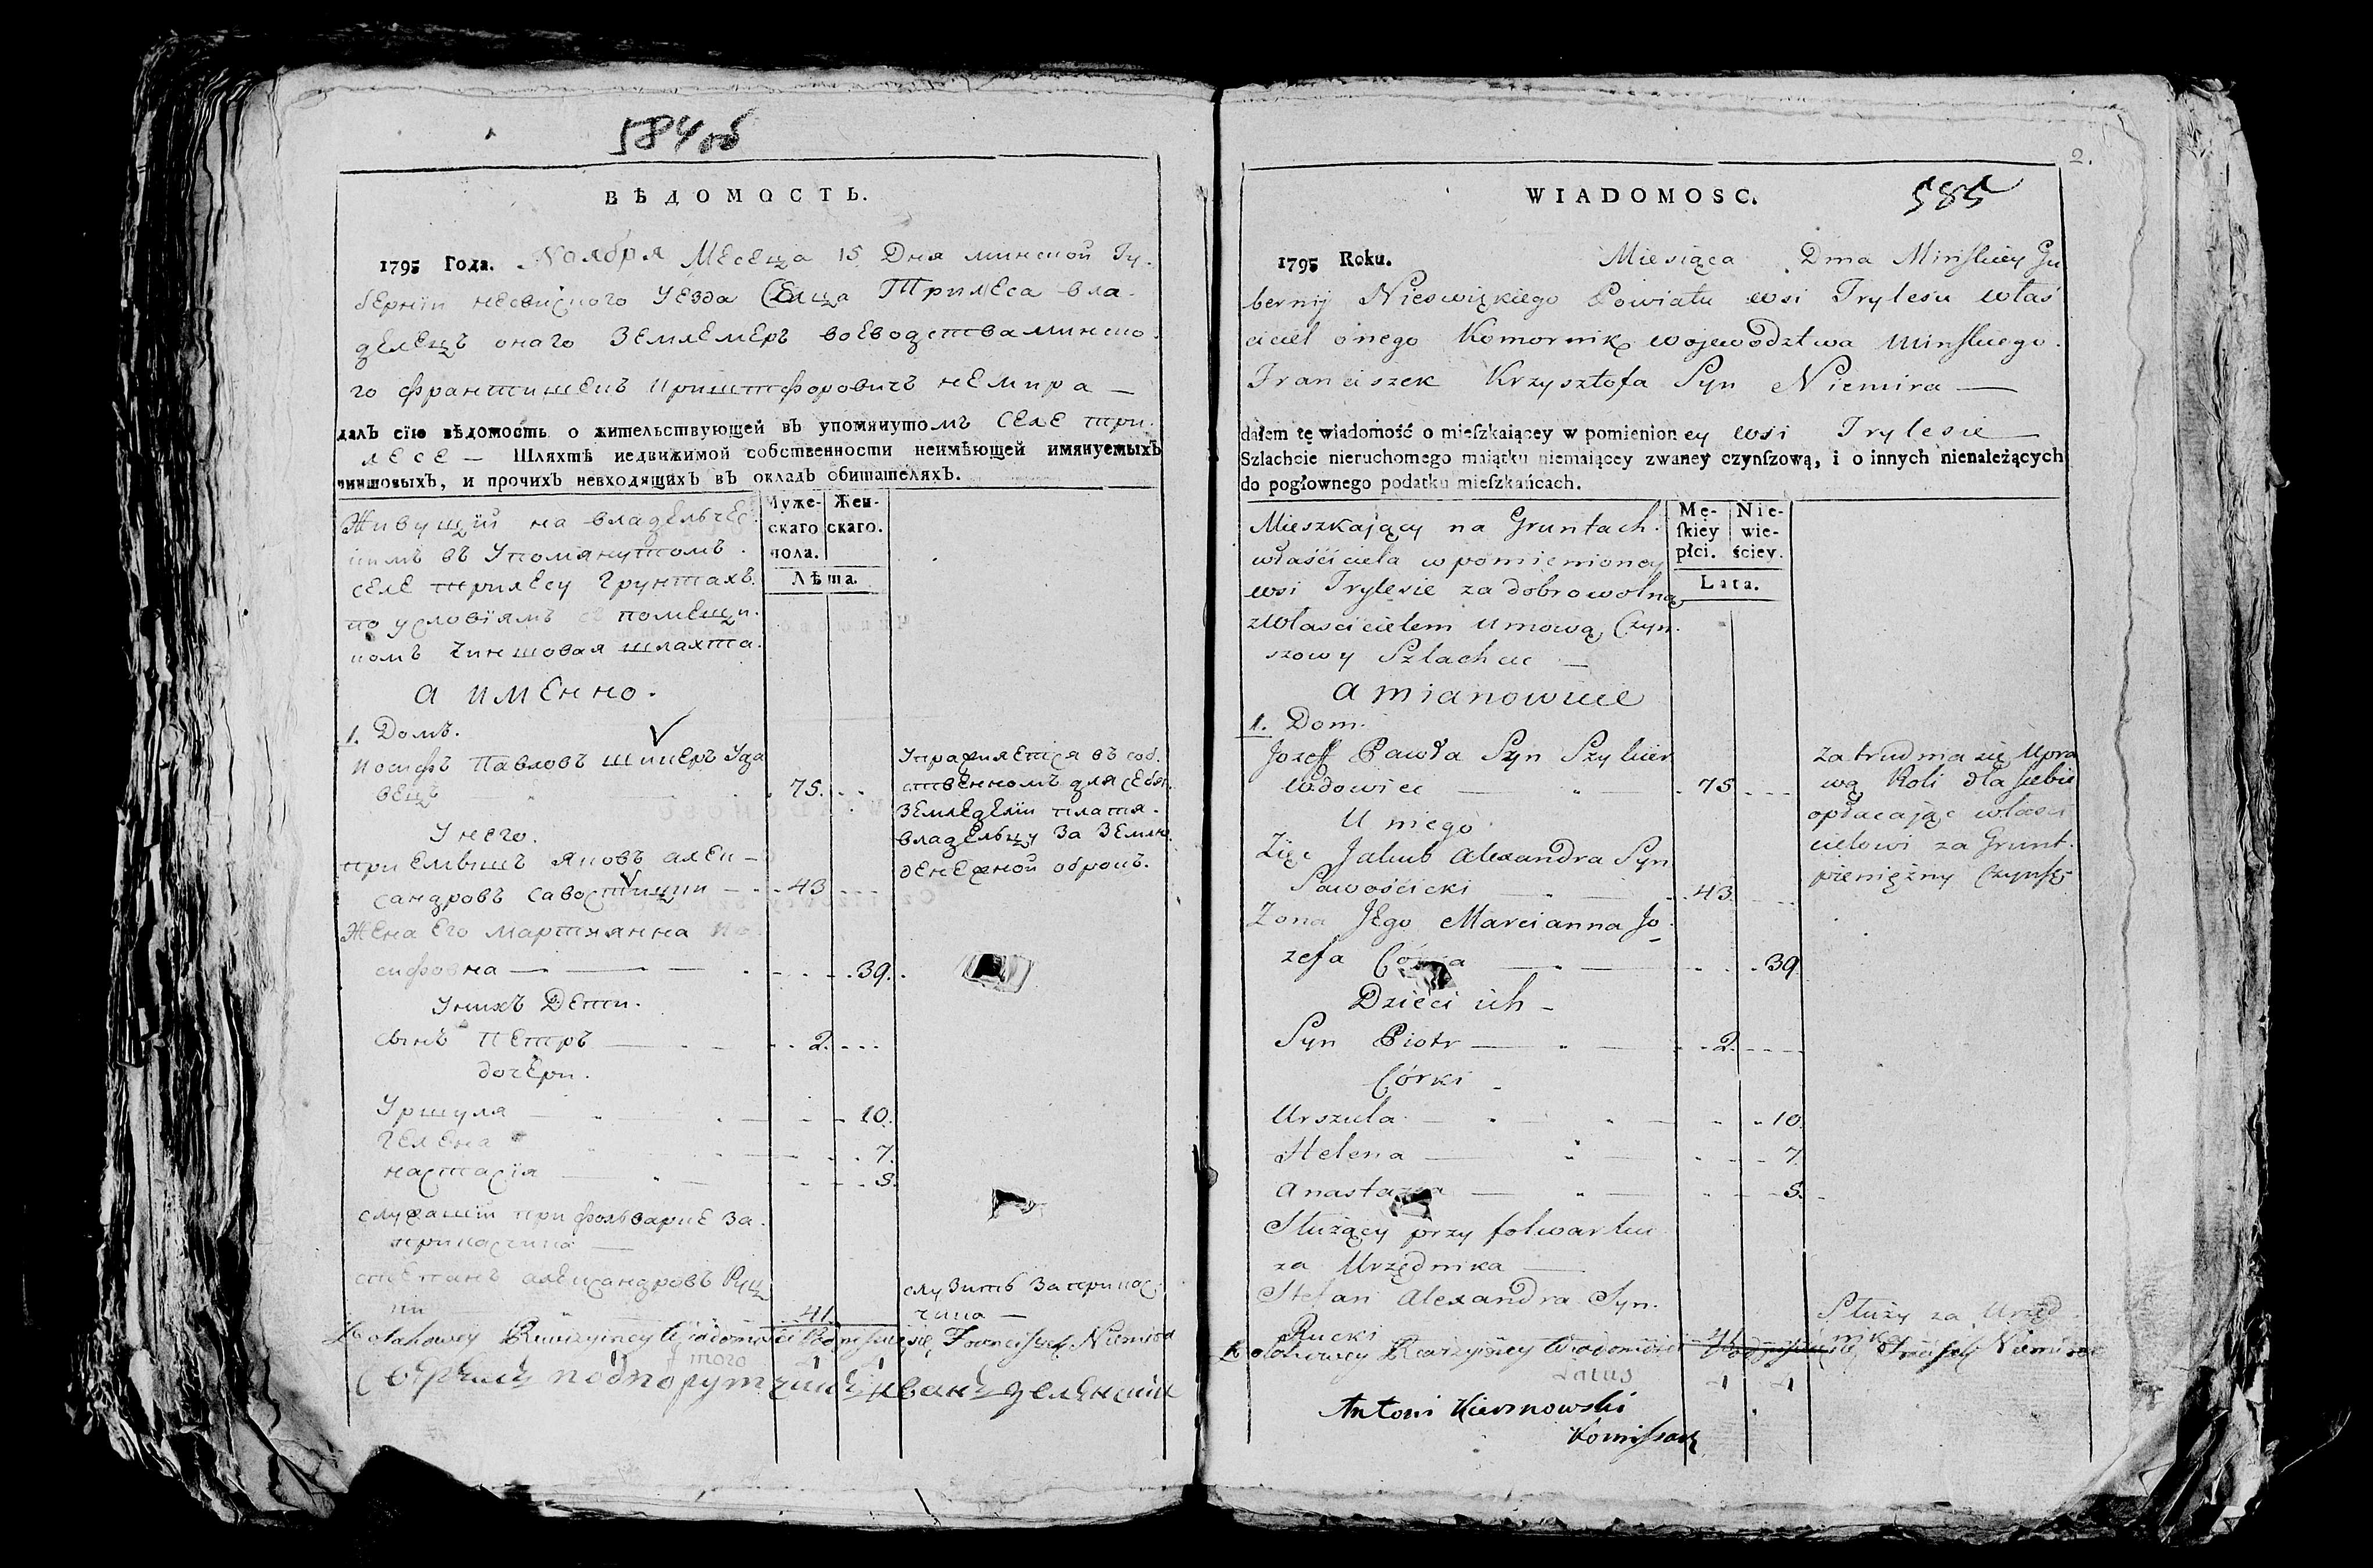 584 об
ВѢДОМОСТЬ.
1795 Года. Ноября Месеца 15 Дня минской Гу-
бернїи несвиского Уезда Села Трилеса вла-
делецъ онаго Землемеръ воеводства минско-
го францишекъ криштофоровичъ немира —
далъ сїю вѣдомость о жительствующей въ упомянутомъ Селе три-
лесе — Шляхтѣ недвижимой собственности неимѣющей имянуемыхъ
чиншовыхъ, и прочихъ невходящихъ въ окладъ обитателяхъ.
Муже- Жен-
скаго скаго.
пола.
Лѣта.
Живущїй на владельчес-
кимъ въ Упомянутомъ
селе трилесу грунтахъ
по условїямъ съ помещи-
комъ чиншовая шляхта.
а именно.
1. Домъ.
иосифъ Павловъ шикеръ Удо
вецъ 75.
Упражняется въ соб-
ственномъ для себя
земледелїи платя
владельцу за землю
денежной оброкъ.
У него.
приемышъ яковъ алек-
сандровъ савостицкии 43
Жена его мартиянна ио-
сифовна 39.
У нихъ Дети.
сынъ петръ 2.
дочери.
Уршуля 10.
гелена 7.
настасїя 5.
служащїи при фольварке за
прикасчика —
стефанъ александровъ Руц
ки 41.
служитъ за прикас-
чика —
Franciszek Niemira
итого 4 4
подпорутчикъ иванъ
2.
WIADOMOSC.
585
1795 Roku. Miesiąca Dnia Minskiey Gu
bernij Nieswizkiego Powiatu wsi Trylesu właś
ciciel onego Komornik wojewodztwa Minskiego
Franciszek Krzysztofa Syn Niemira —
dałem tę wiadomość o mieſzkaiącey w pomienioney wsi Trylesie —
Szlachcie nieruchomego maiątku niemaiącey zwaney czynſzową, i o innych nienależących
do pogłownego podatku mieſzkańcach.
Mę- Nie-
ſkiey wie-
płci. ściey.
Lata.
Mieszkający na Gruntach
właściciela w pomienioney
wsi Trylesie za dobrowolną
z Włascicielem umową Czyn-
szowy Szlachcic —
a mianowicie
1. Dom.
Jozef Pawła Syn Szykier
Wdowiec 75
zatrudnia się Upra
wą Roli dla siebie
opłacając właści
cielowi za Grunt
pieniężny Czynsz
U niego
Zięć Jakub Alexandra Syn
Sawościcki 43
Zona Jego Marcianna Jo-
zefa Córka 39
Dzieci ich —
Syn Piotr 2
Córki
Urszula 10
Helena 7
Anastazia 5.
Służący przy folwarku
za Urzędnika —
Stefan Alexandra Syn
Rucki 41
Służy za Urzęd
nika
Latus 4 4
Antoni Kiersnowski
Komissarz